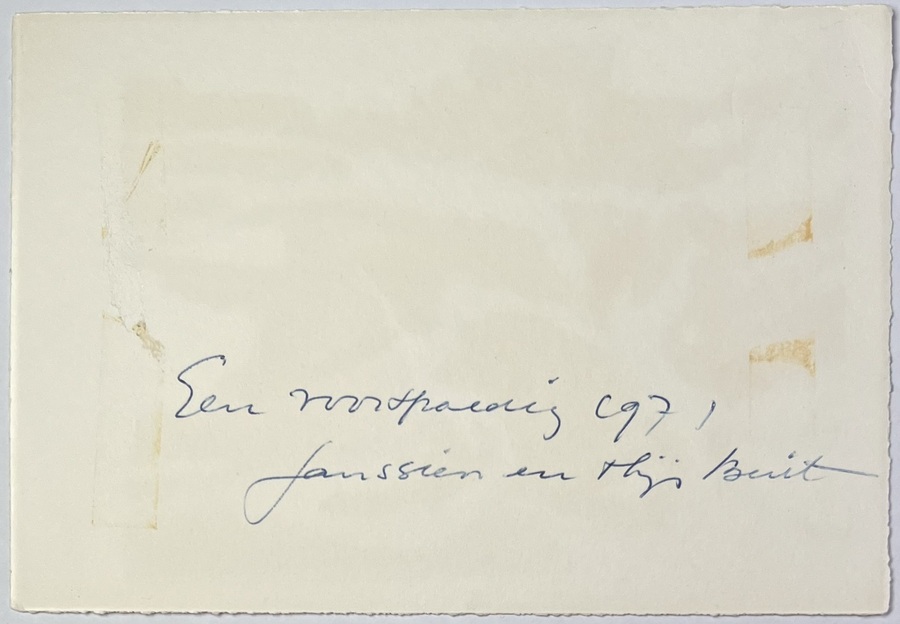 Een voorspoedig 1971
Janssien en thijs Buit